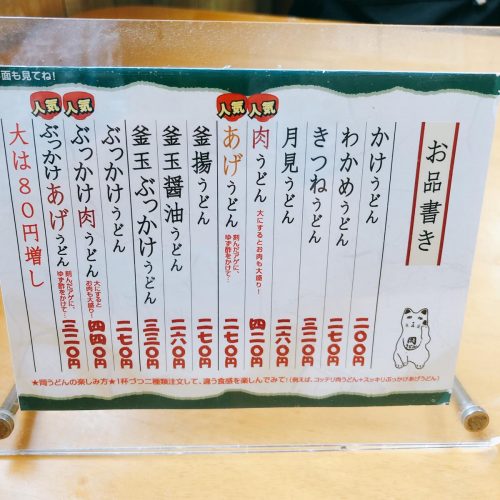 面も見てね!
お品書き
かけうどん 二〇〇円
わかめうどん 二七〇円
きつねうどん 三二〇円
月見うどん 二六〇円
人気
肉うどん 大にするとお肉も大盛り! 四二〇円
人気
あげうどん 刻んだアゲに、
ゆず酢をかけて… 二七〇円
釜揚うどん 二七〇円
釜玉醤油うどん 二六〇円
釜玉ぶっかけうどん 三三〇円
ぶっかけうどん 二七〇円
人気
ぶっかけ肉うどん 大にすると
お肉も大盛り! 四四〇円
人気
ぶっかけあげうどん 刻んだアゲに、
ゆず酢をかけて… 三二〇円
大は80円増し
★岡うどんの楽しみ方★1杯づつ二種類注文して、違う食感を楽しんでみて!(例えば、コッテリ肉うどん+スッキリぶっかけあげうどん)